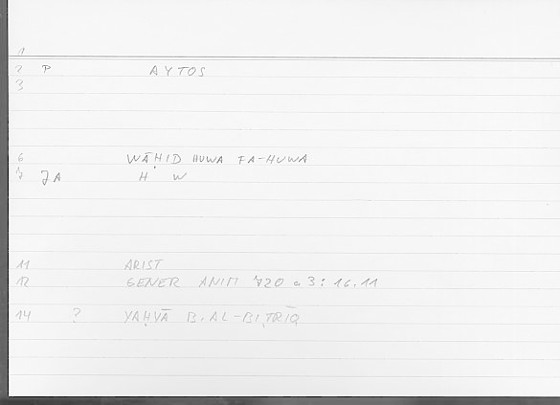 1
2 P AYTOS
3
6 WĀḤID HUWA FA-HUWA
7 JA H W
11 ARIST
12 GENER ANIM 720 a 3 : 16.11
14 ? YAḤYĀ B. AL-BIṬRĪQ